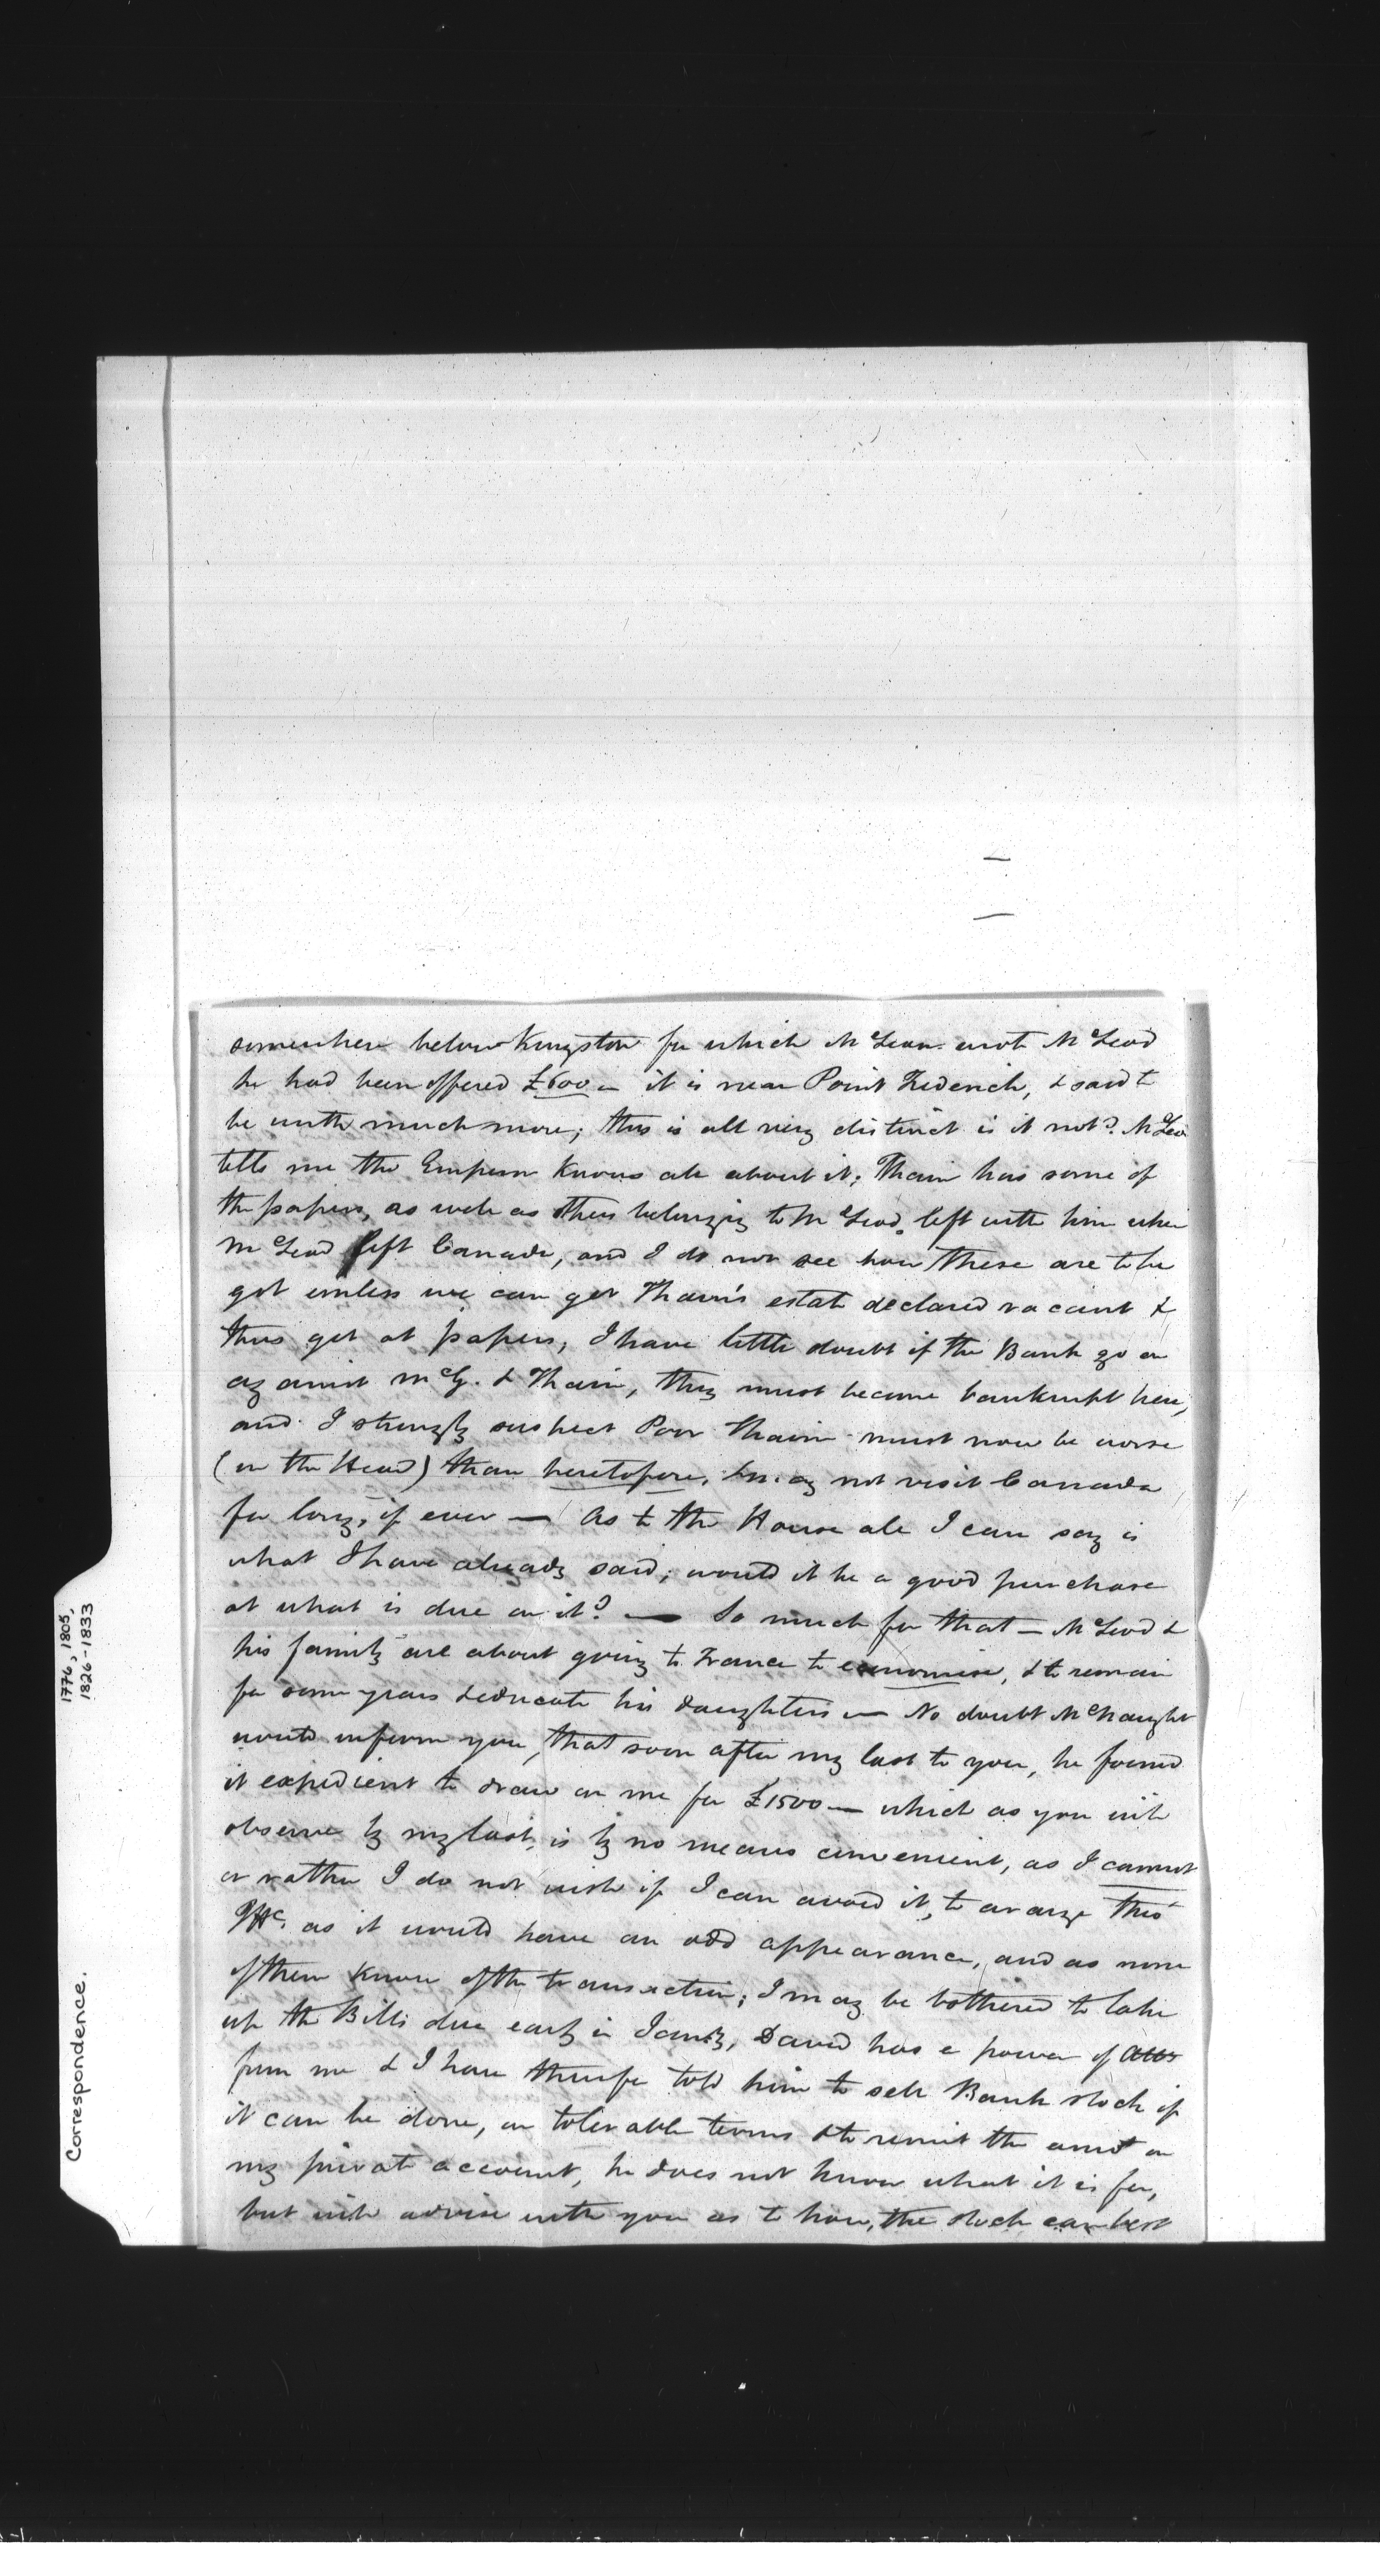 somewhere below Kingston for which McLean wrote McLeod
he had been offered £600 — it is near Point Frederick, & said to
be worth much more; this is all very distinct is it not? McLeod
tells me the Emperor knows all about it; Thain has some of
the papers, as well as others belonging to McLeod, left with him when
McLeod left Canada, and I do not see how these are to be
got unless we can get Thain's estate declared vacant &
thus get at papers, I have little doubt if the Bank go on
against McG. & Thain, they must become bankrupt here,
and I strongly suspect Poor Thain must now be worse
(in the Head) than heretofore, & may not visit Canada
for long, if ever — As to the House all I can say is
what I have already said; would it be a good purchase
at what is due on it? — So much for that — McLeod &
his family are about going to France to economise, & to remain
for some years & educate his daughters — No doubt McNaught
would inform you, that soon after my last to you, he found
it expedient to draw on me for £1500 — which as you will
observe by my last, is by no means convenient, as I cannot
or rather I do not wish if I can avoid it, to arange this
as it would have an odd appearance, and as none
of them know of the transaction; I may be bothered to take
up the Bills due early in Jany, David has a power of Atty
from me & I have therefore told him to sell Bank stock if
it can be done, on tolerable terms & to remit the amot on
my private account, he does not know what it is for,
but will advise with you as to how, the stock can best
Correspondence.
1776, 1805,
1826-1833